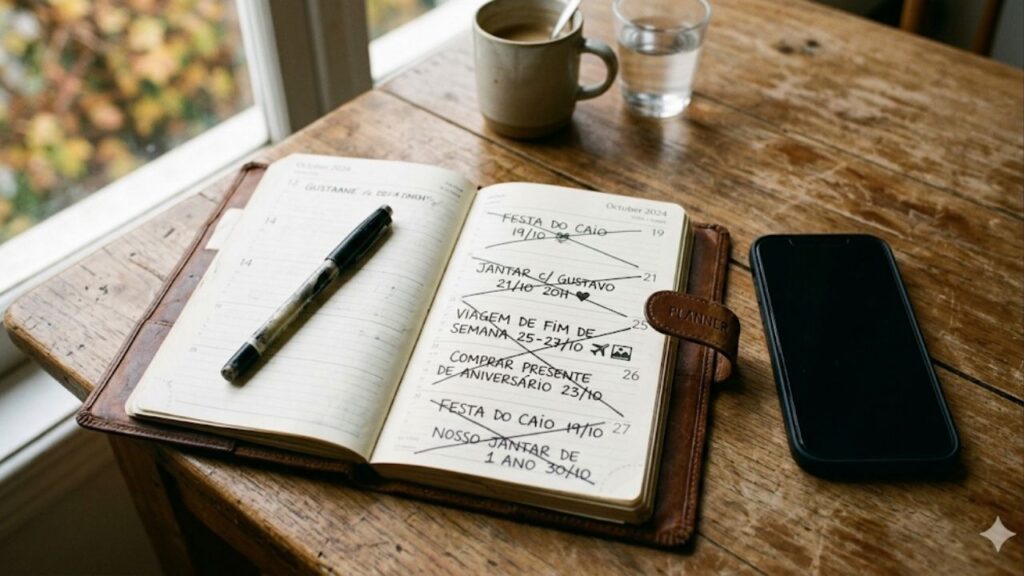 October 2024
14
14
October 2024
FESTA DO CAIO 19
19/10
21
JANTAR C/ GUSTAVO
21/10 20H ♥
VIAGEM DE FIM DE 25
SEMANA 25-27/10
26
COMPRAR PRESENTE
DE ANIVERSÁRIO 23/10
FESTA DO CAIO 19/10 27
NOSSO JANTAR DE
1 ANO 30/10
PLANNER